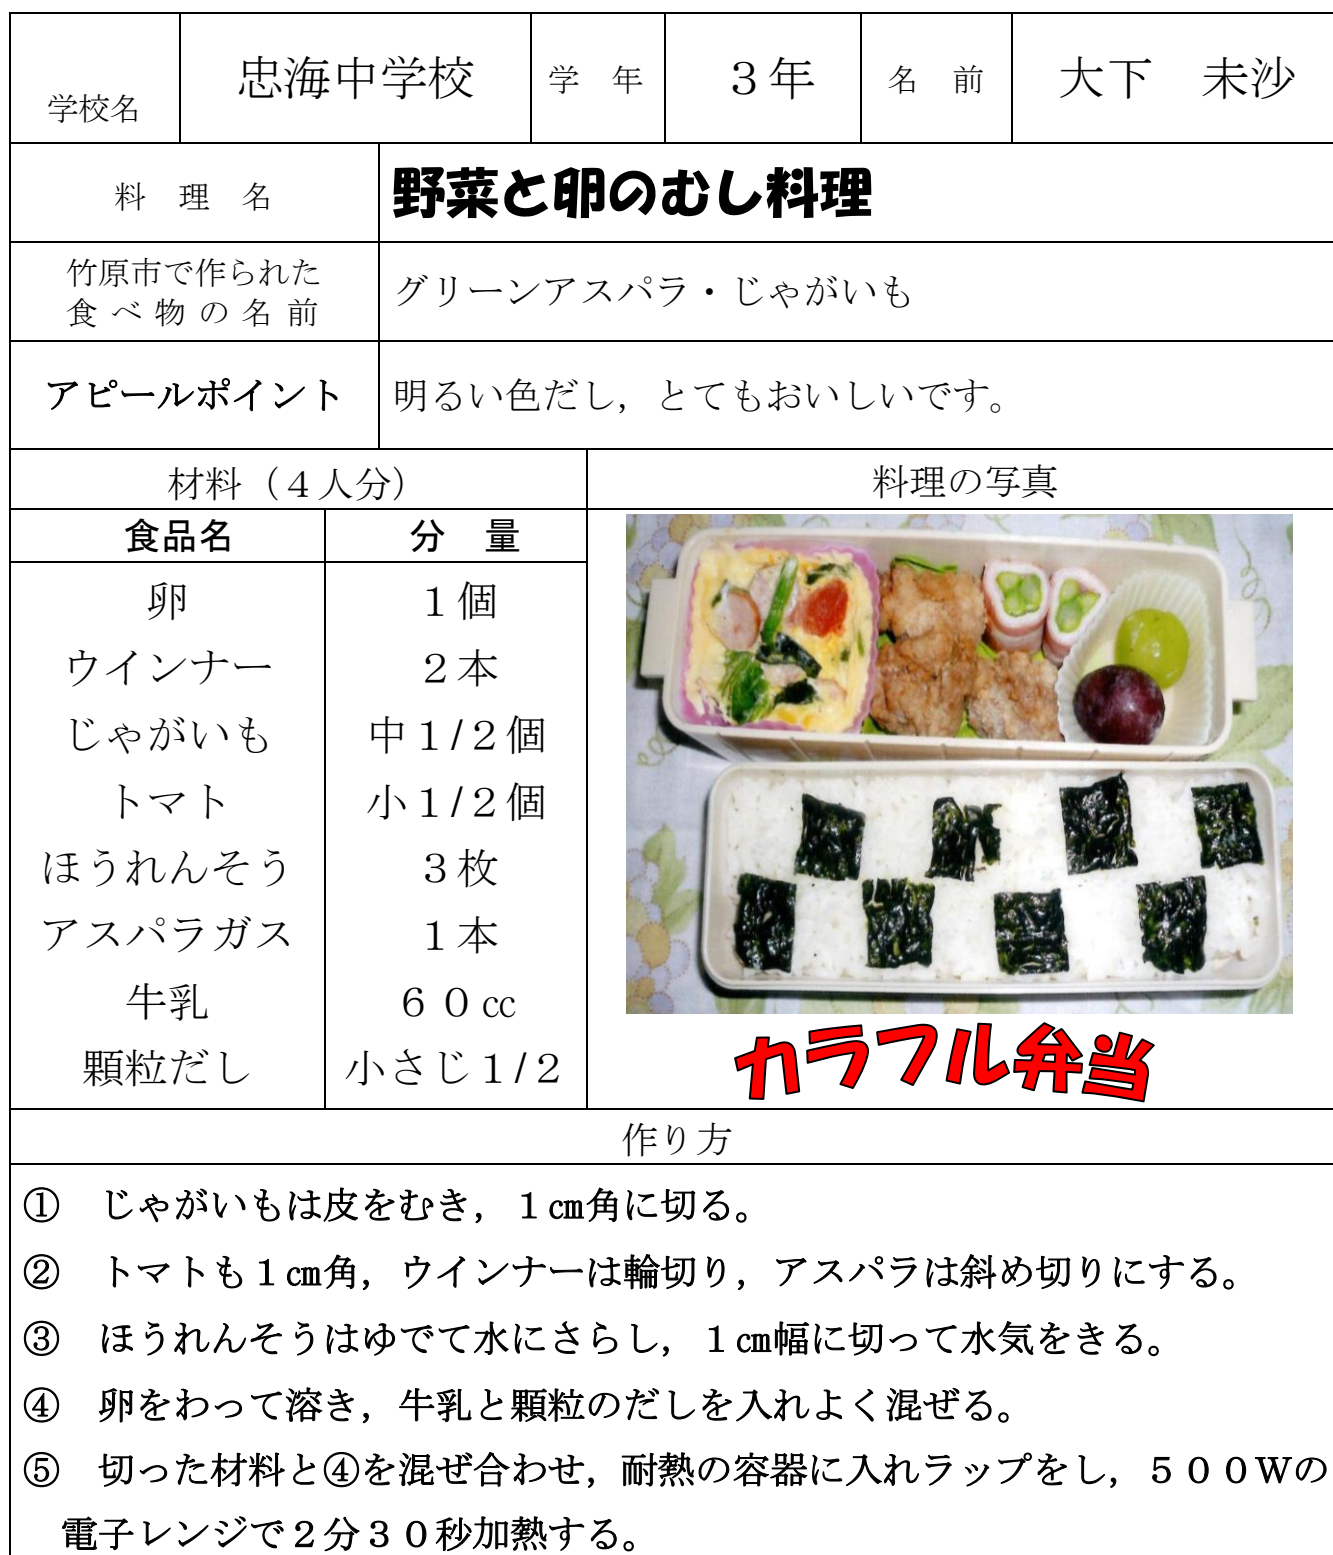 学校名 忠海中学校 学 年 ３年 名 前 大下 未沙
料 理 名 野菜と卵のむし料理
竹原市で作られた
食べ物の名前
グリーンアスパラ・じゃがいも
アピールポイント 明るい色だし，とてもおいしいです。
材料（４人分） 料理の写真
食品名 分 量
卵 １個
ウインナー ２本
じゃがいも 中１/２個
トマト 小１/２個
ほうれんそう ３枚
アスパラガス １本
牛乳 ６０㏄
顆粒だし 小さじ１/２
カラフル弁当
作り方
① じゃがいもは皮をむき，１㎝角に切る。
② トマトも１㎝角，ウインナーは輪切り，アスパラは斜め切りにする。
③ ほうれんそうはゆでて水にさらし，１㎝幅に切って水気をきる。
④ 卵をわって溶き，牛乳と顆粒のだしを入れよく混ぜる。
⑤ 切った材料と④を混ぜ合わせ，耐熱の容器に入れラップをし，５００Wの
電子レンジで２分３０秒加熱する。